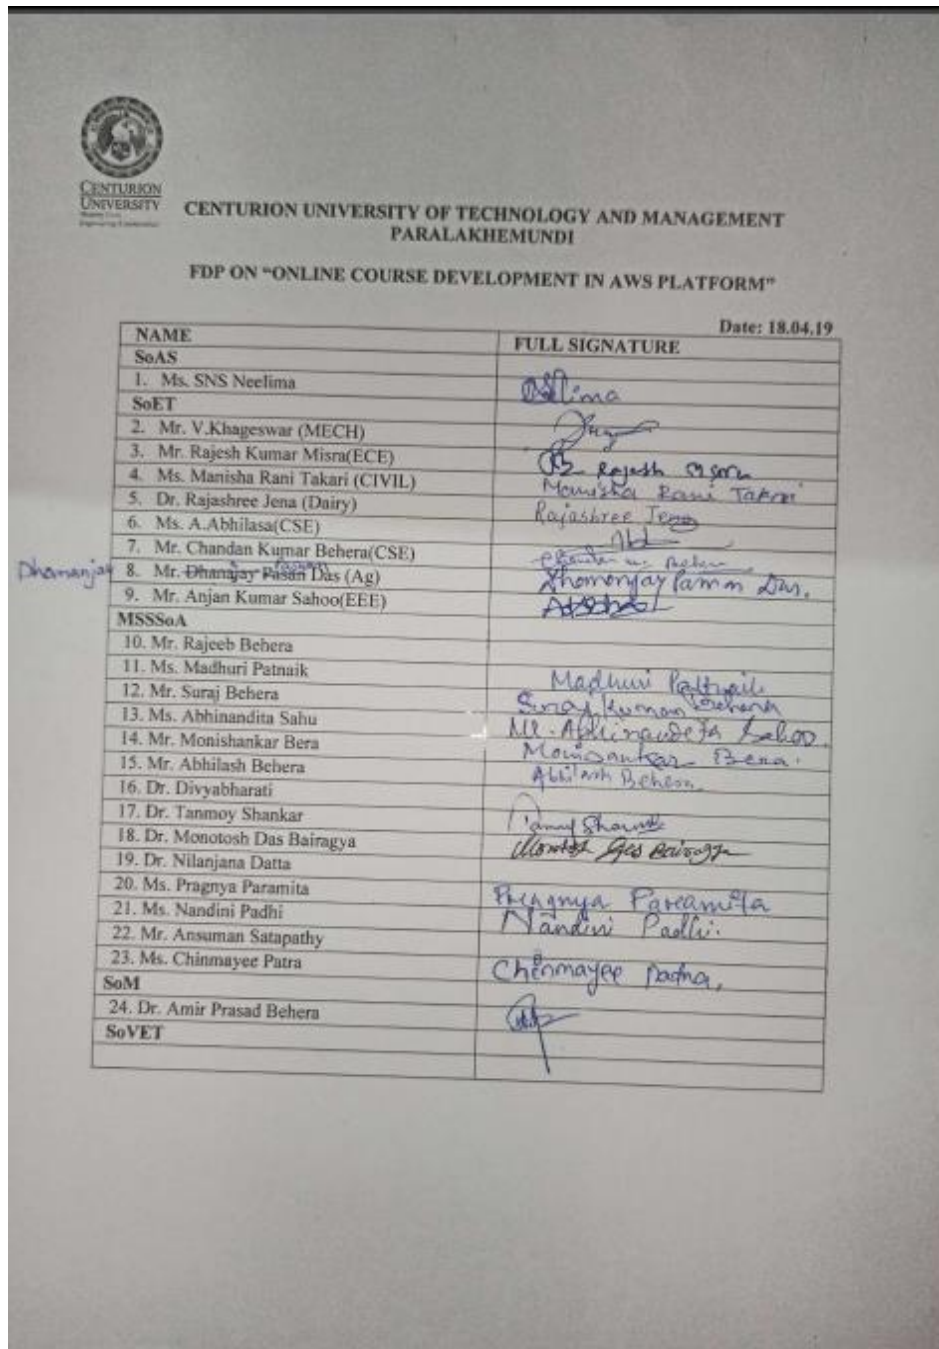 CENTURION
UNIVERSITY
CENTURION UNIVERSITY OF TECHNOLOGY AND MANAGEMENT
PARALAKHEMUNDI
FDP ON “ONLINE COURSE DEVELOPMENT IN AWS PLATFORM”
Date: 18.04.19
NAME FULL SIGNATURE
SoAS
1. Ms. SNS Neelima
SoET
2. Mr. V.Khageswar (MECH)
3. Mr. Rajesh Kumar Misra(ECE) Rajesh
4. Ms. Manisha Rani Takari (CIVIL) Manisha Rani Takri
5. Dr. Rajashree Jena (Dairy) Rajashree Jena
6. Ms. A.Abhilasa(CSE)
7. Mr. Chandan Kumar Behera(CSE)
Dhananjay 8. Mr. Dhanajay Pasan Das (Ag) Dhananjay Das.
9. Mr. Anjan Kumar Sahoo(EEE)
MSSSoA
10. Mr. Rajeeb Behera
11. Ms. Madhuri Patnaik Madhuri Pattnaik
12. Mr. Suraj Behera Suraj Kumar Behera
13. Ms. Abhinandita Sahu
14. Mr. Monishankar Bera Monisankar Bera.
15. Mr. Abhilash Behera Abhilash Behera
16. Dr. Divyabharati
17. Dr. Tanmoy Shankar Tanmoy Shankar
18. Dr. Monotosh Das Bairagya Monotosh Das Bairagya
19. Dr. Nilanjana Datta
20. Ms. Pragnya Paramita Pragnya Paramita
21. Ms. Nandini Padhi Nandini Padhi.
22. Mr. Ansuman Satapathy
23. Ms. Chinmayee Patra Chinmayee Patra,
SoM
24. Dr. Amir Prasad Behera
SoVET